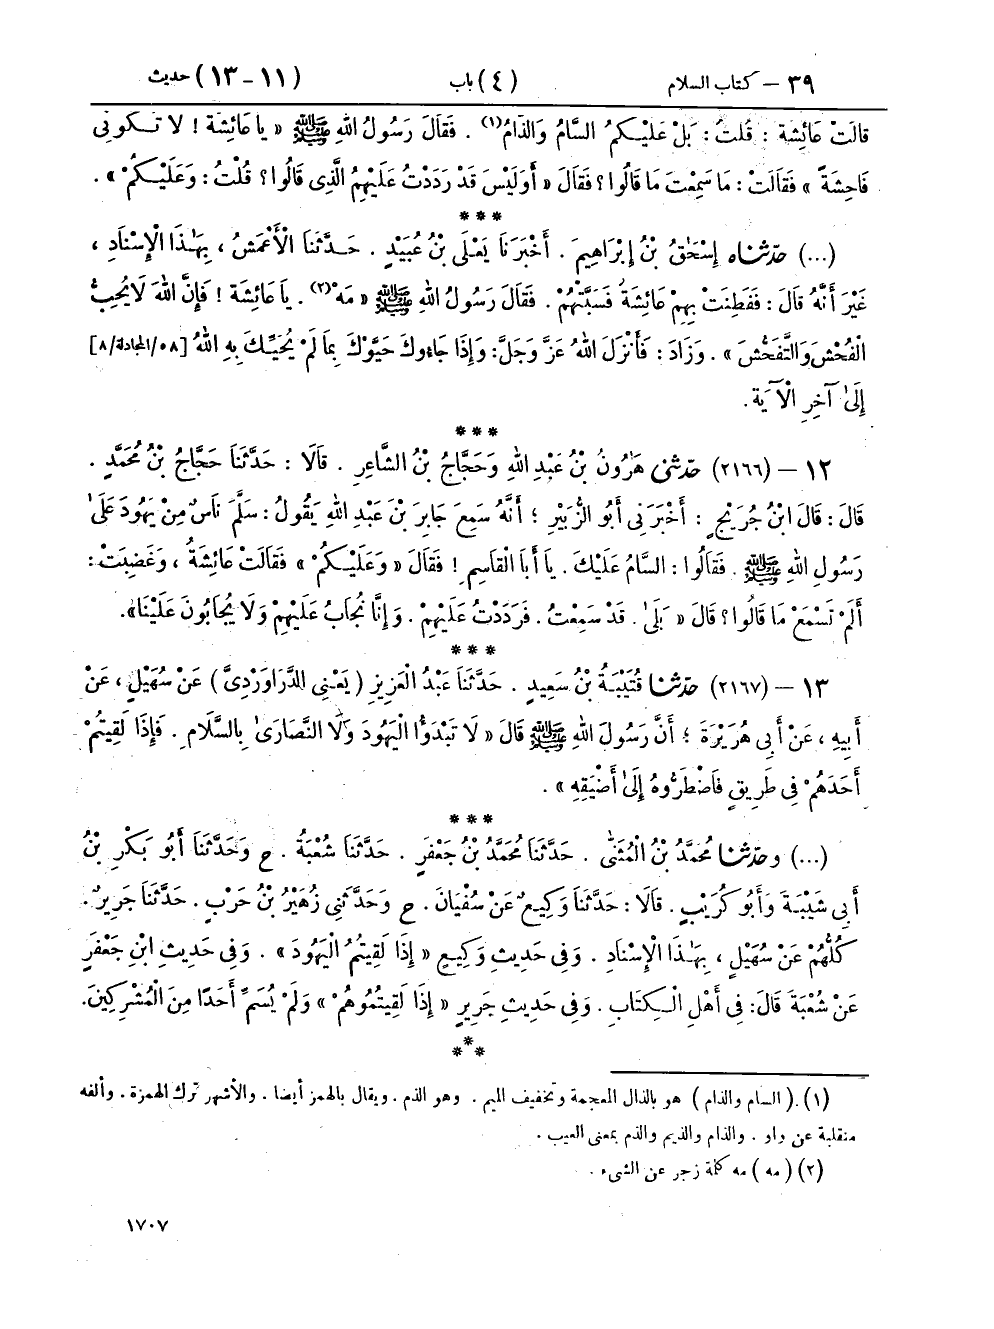 ٣٩ – كتاب السلام (٤) باب (١١ - ١٣) حديث
قَالَتْ عَائِشَةُ: قُلْتُ: بَلْ عَلَيْكُمُ السَّامُ وَالذَّامُ(١). فَقَالَ رَسُولُ اللهِ ﷺ « يَا عَائِشَةُ! لَا تَكُونِي
فَاحِشَةً » فَقَالَتْ: مَا سَمِعْتَ مَا قَالُوا؟ فَقَالَ « أَوَلَيْسَ قَدْ رَدَدْتُ عَلَيْهِمُ الَّذِي قَالُوا؟ قُلْتُ: وَعَلَيْكُمْ ».
***
(...) حدّثناه إِسْحَٰقُ بْنُ إِبْرَاهِيمَ. أَخْبَرَنَا يَعْلَى بْنُ عُبَيْدٍ. حَدَّثَنَا الْأَعْمَشُ، بِهَٰذَا الْإِسْنَادِ،
غَيْرَ أَنَّهُ قَالَ: فَفَطِنَتْ بِهِمْ عَائِشَةُ فَسَبَّتْهُمْ. فَقَالَ رَسُولُ اللهِ ﷺ « مَهْ(٢). يَا عَائِشَةُ! فَإِنَّ اللهَ لَا يُحِبُّ
الْفُحْشَ وَالتَّفَحُّشَ ». وَزَادَ: فَأَنْزَلَ اللهُ عَزَّ وَجَلَّ: وَإِذَا جَاءُوكَ حَيَّوْكَ بِمَا لَمْ يُحَيِّكَ بِهِ اللهُ [٥٨/المجادلة/٨]
إِلَىٰ آخِرِ الْآيَةِ.
***
١٢ – (٢١٦٦) حدّثني هَٰرُونُ بْنُ عَبْدِ اللهِ وَحَجَّاجُ بْنُ الشَّاعِرِ. قَالَا: حَدَّثَنَا حَجَّاجُ بْنُ مُحَمَّدٍ.
قَالَ: قَالَ ابْنُ جُرَيْجٍ: أَخْبَرَنِي أَبُو الزُّبَيْرِ؛ أَنَّهُ سَمِعَ جَابِرَ بْنَ عَبْدِ اللهِ يَقُولُ: سَلَّمَ نَاسٌ مِنْ يَهُودَ عَلَىٰ
رَسُولِ اللهِ ﷺ. فَقَالُوا: السَّامُ عَلَيْكَ. يَا أَبَا الْقَاسِمِ! فَقَالَ « وَعَلَيْكُمْ » فَقَالَتْ عَائِشَةُ، وَغَضِبَتْ:
أَلَمْ تَسْمَعْ مَا قَالُوا؟ قَالَ « بَلَىٰ. قَدْ سَمِعْتُ. فَرَدَدْتُ عَلَيْهِمْ. وَإِنَّا نُجَابُ عَلَيْهِمْ وَلَا يُجَابُونَ عَلَيْنَا».
***
١٣ – (٢١٦٧) حدّثنا قُتَيْبَةُ بْنُ سَعِيدٍ. حَدَّثَنَا عَبْدُ الْعَزِيزِ (يَعْنِي الدَّرَاوَرْدِيَّ) عَنْ سُهَيْلٍ، عَنْ
أَبِيهِ، عَنْ أَبِي هُرَيْرَةَ؛ أَنَّ رَسُولَ اللهِ ﷺ قَالَ « لَا تَبْدَؤُا الْيَهُودَ وَلَا النَّصَارَىٰ بِالسَّلَامِ. فَإِذَا لَقِيتُمْ
أَحَدَهُمْ فِي طَرِيقٍ فَاضْطَرُّوهُ إِلَىٰ أَضْيَقِهِ ».
***
(...) وحدّثنا مُحَمَّدُ بْنُ الْمُثَنَّىٰ. حَدَّثَنَا مُحَمَّدُ بْنُ جَعْفَرٍ. حَدَّثَنَا شُعْبَةُ. ح وَحَدَّثَنَا أَبُو بَكْرِ بْنُ
أَبِي شَيْبَةَ وَأَبُو كُرَيْبٍ. قَالَا: حَدَّثَنَا وَكِيعٌ عَنْ سُفْيَانَ. ح وَحَدَّثَنِي زُهَيْرُ بْنُ حَرْبٍ. حَدَّثَنَا جَرِيرٌ.
كُلُّهُمْ عَنْ سُهَيْلٍ، بِهَٰذَا الْإِسْنَادِ. وَفِي حَدِيثِ وَكِيعٍ « إِذَا لَقِيتُمُ الْيَهُودَ ». وَفِي حَدِيثِ ابْنِ جَعْفَرٍ
عَنْ شُعْبَةَ قَالَ: فِي أَهْلِ الْكِتَابِ. وَفِي حَدِيثِ جَرِيرٍ « إِذَا لَقِيتُمُوهُمْ » وَلَمْ يُسَمِّ أَحَدًا مِنَ الْمُشْرِكِينَ.
***
(١) (السام والذام) هو بالذال المعجمة وتخفيف الميم. وهو الذم. ويقال بالهمز أيضا. والأشهر ترك الهمزة. وألفه
منقلبة عن واو. والذام والذيم والذم بمعنى العيب.
(٢) (مه) مه كلمة زجر عن الشيء.
١٧٠٧